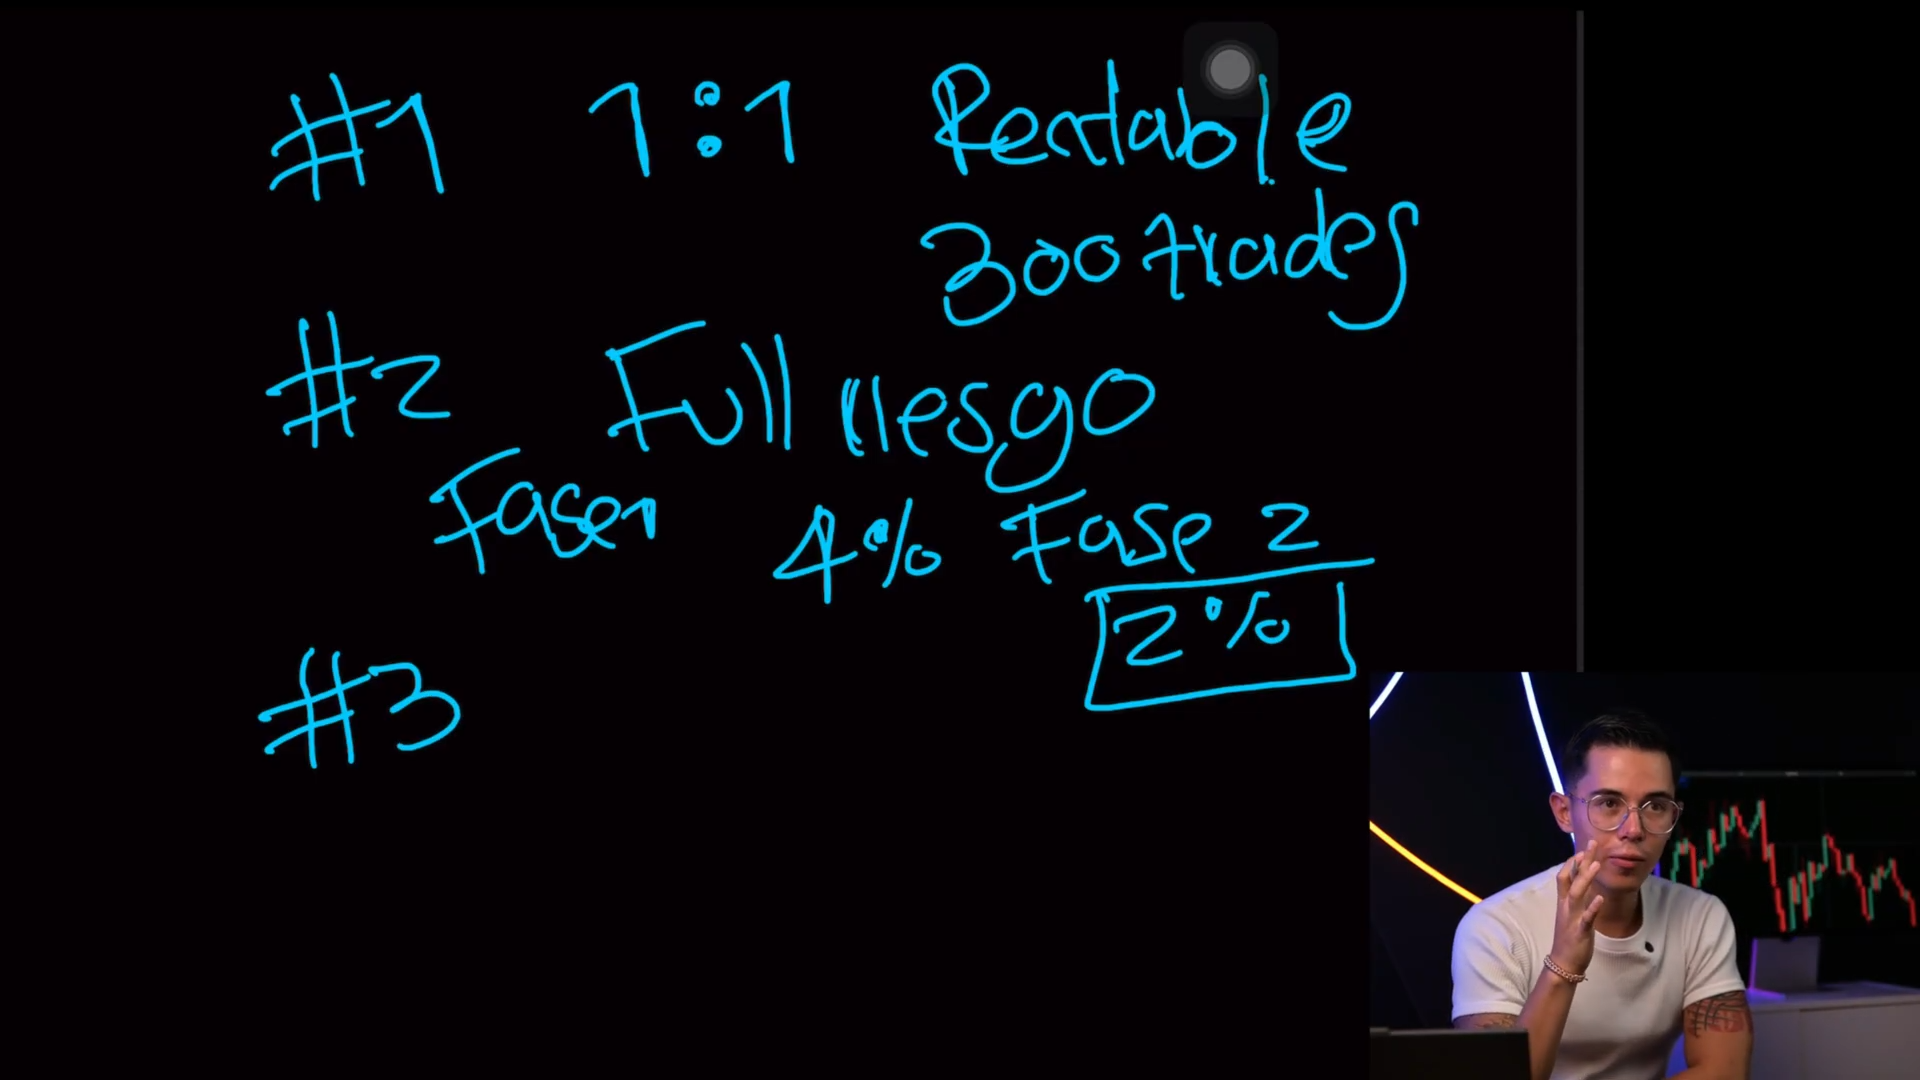 #1 1:1 Rentable
300 trades
#2 Full riesgo
Fase 1 4% Fase 2
2%
#3